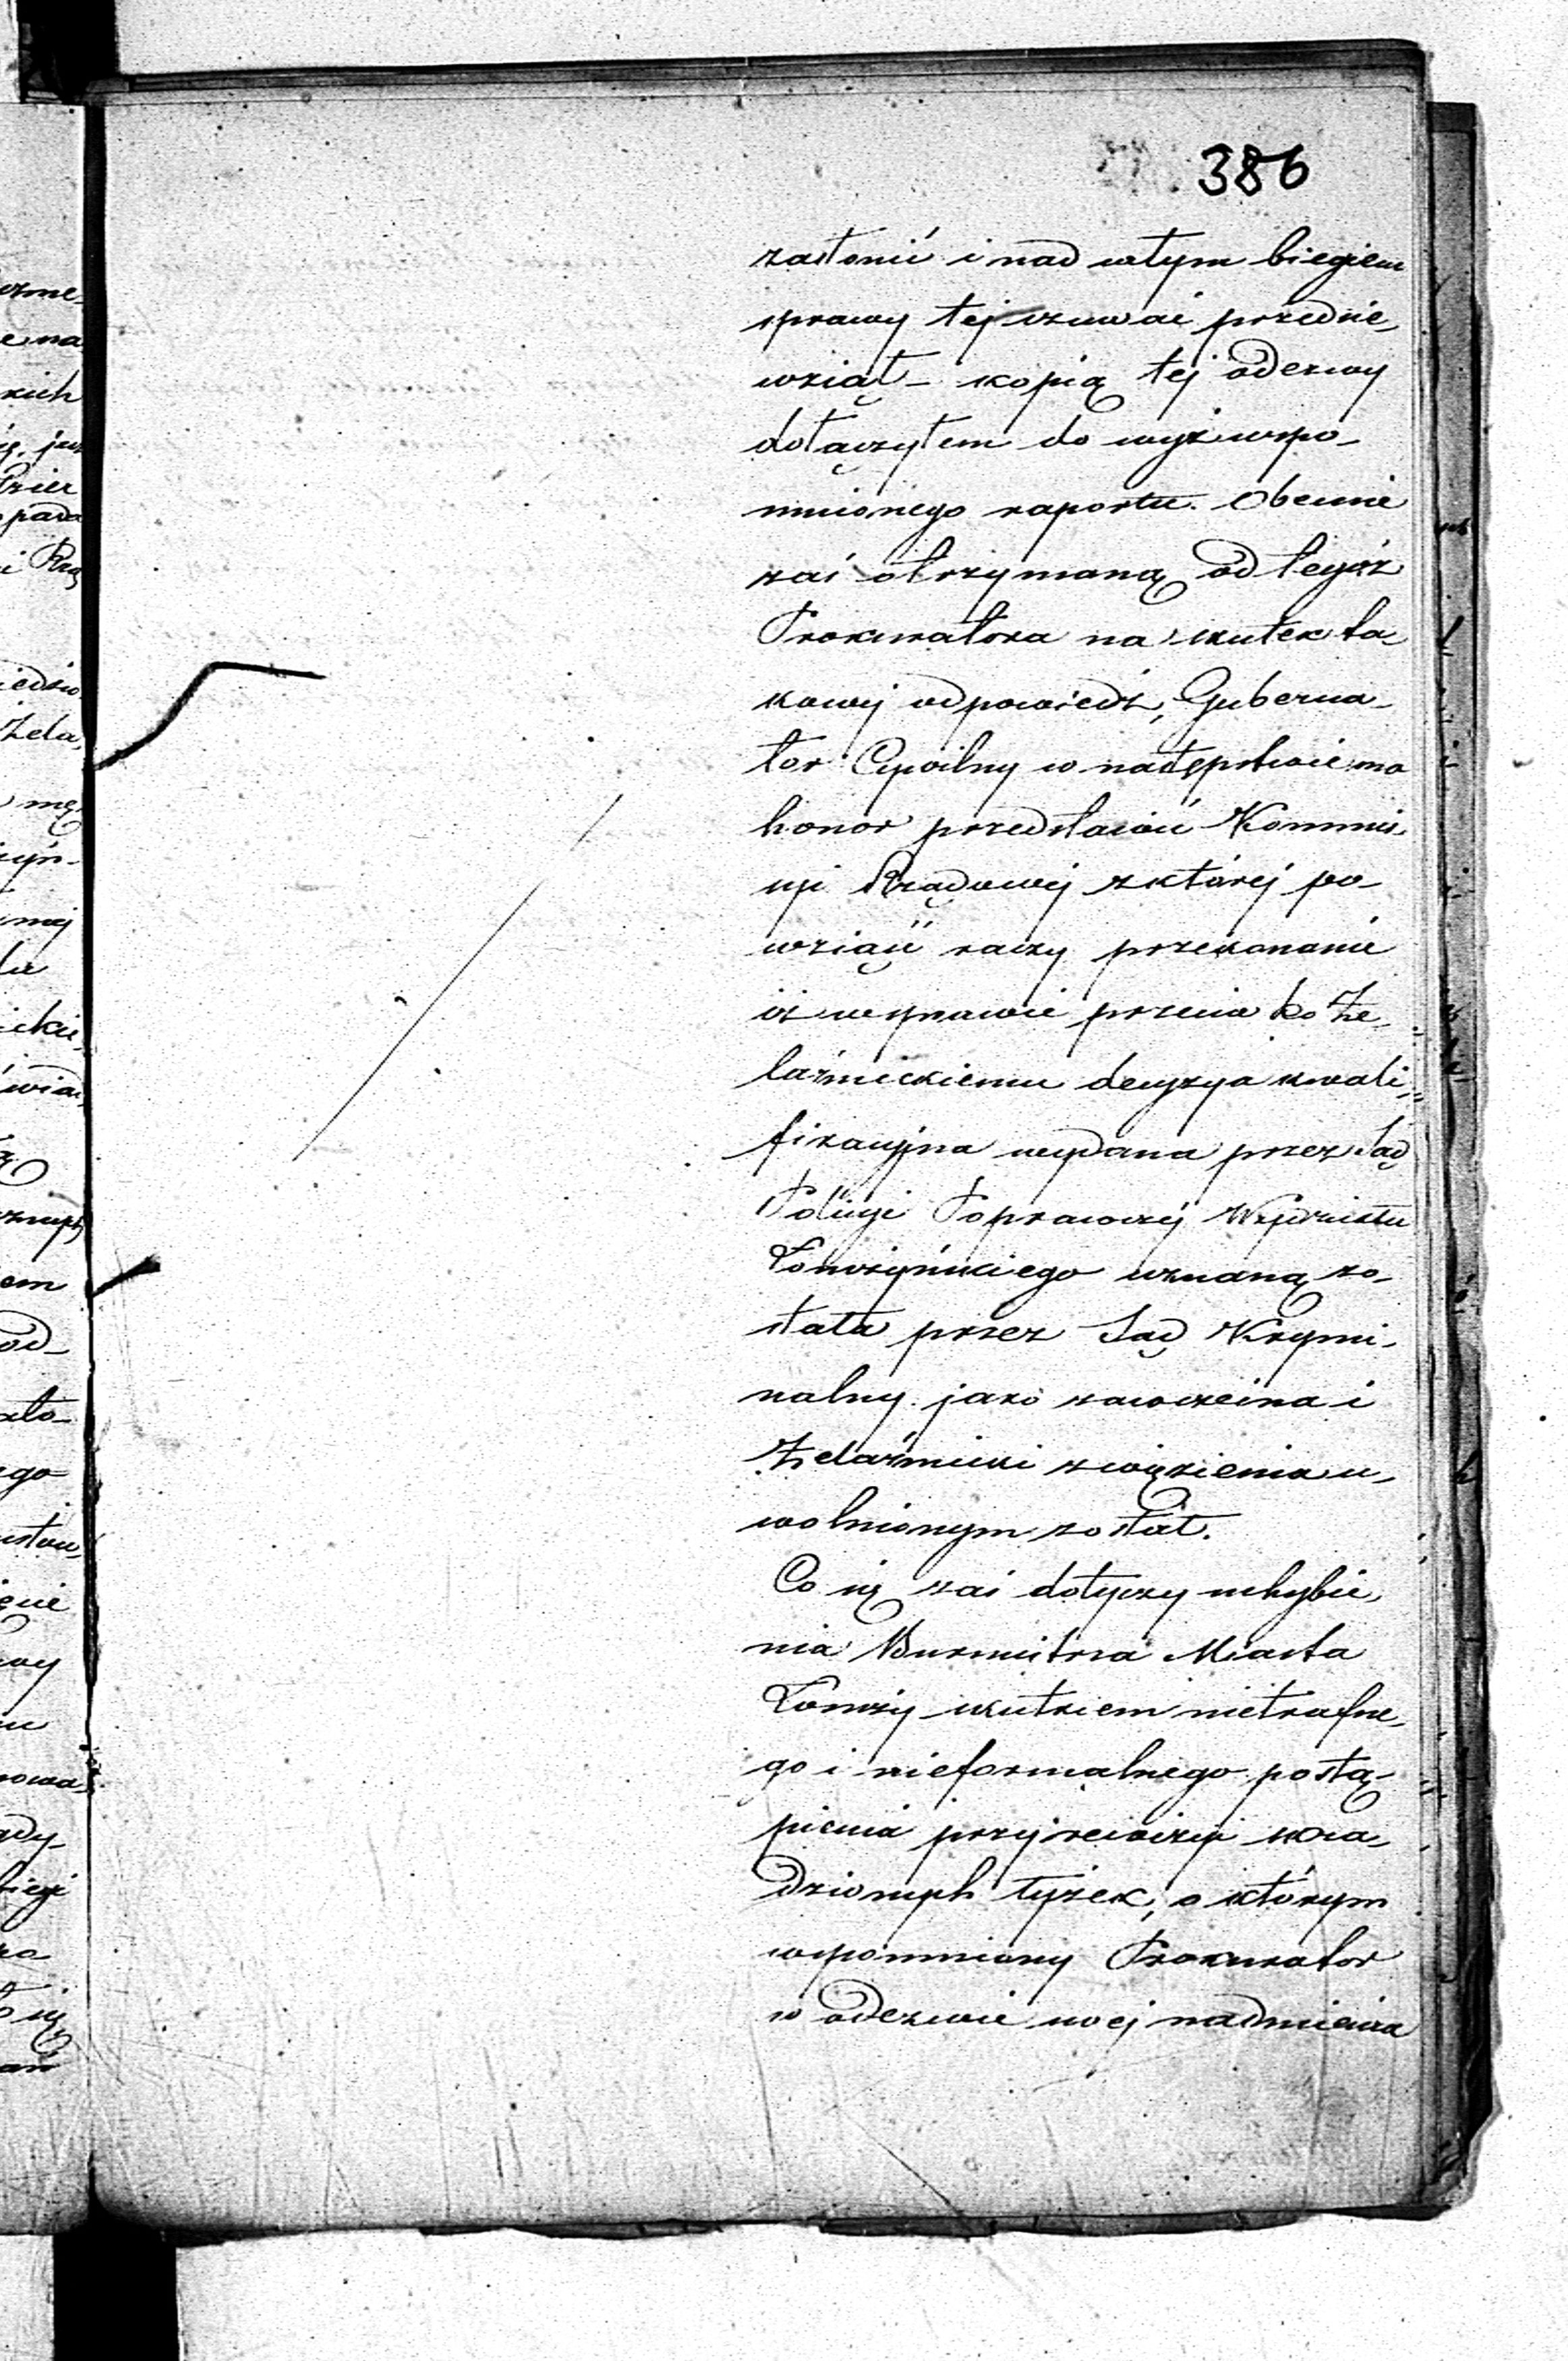 386
zasłonić i nad wtym biegiem
sprawy tej czuwać przedsie,
wziął – kopią tej odezwy
dołączyłem do wyż wspo-
mnionego raportu. Obecnie
zaś otrzymaną od tegoż
Prokuratora na skutek ta-
kowej odpowiedź, Guberna-
tor Cywilny w następstwie ma
honor przedstawić Kommis,
syi Rządowej z której po-
wziąść raczy przekonanie
iż w sprawie przeciwko Że-
laźnickiemu decyzya kwali,
fikacyjna wydana przez Sąd
Policyi Poprawczej Wydziału
Łomżyńskiego uznaną zo-
stała przez Sąd Krymi-
nalny jako zawczesna i
Żelaźnicki z więzienia u-
wolnionym został.
Co się zaś dotyczy uchybie,
nia Burmistrza Miasta
Łomży skutkiem nietrafne,
go i nieformalnego postą-
pienia przy rewizyi skra,
dzionych łyżek, o którym
wspomniony Prokurator
w odezwie swej nadmienia